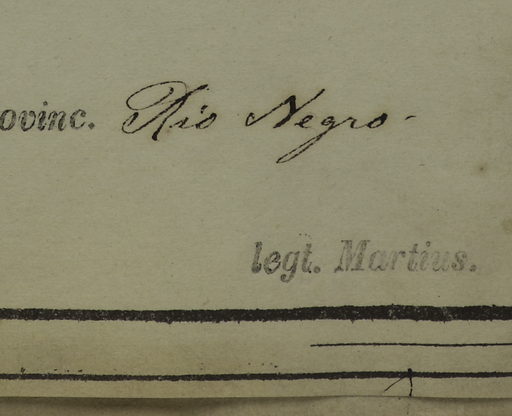 ovinc. Rio Negro-
legt. Martius.